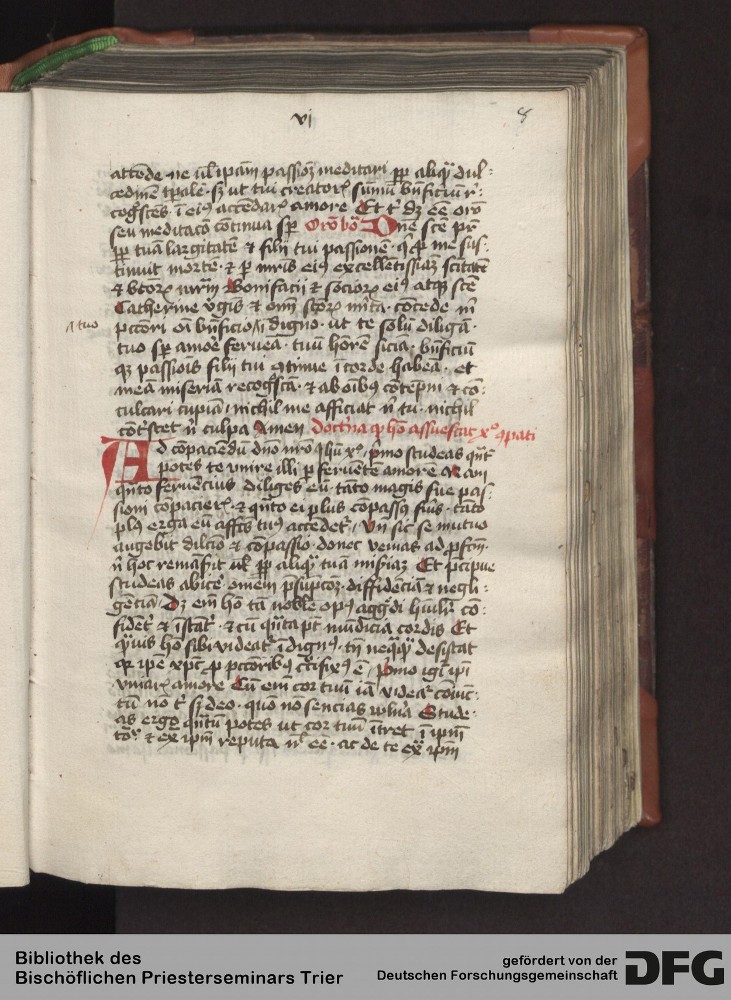 vj 8
attēde ne ul ipam passioȝ meditari ꝓꝑ aliqͣ dul-
cedinē tꝑalē sȝ ut tui creatorꝭ sūmū bn̄ficiū r-
cogscēs ī eiꝰ accēdarꝭ amore Et dȝ eē orō
seu meditacō continua sꝑ Orō bō Dn̄e scē pr̄
ꝓꝑ tuā largitatē & filij tui passionē ꝓ me sus-
tinuit mortē & ꝑ mr̄is eiꝰ excellētissiāȝ scitatē
& btorꝝ Bonifacii & socioꝝ eiꝰ atqꝫ scē
Catherine v̄gīs & om̄ scorꝝ mīta cōcede m
a tuo
pccōri oī bn̄ficio īdigno ut te solū diligā
tuo sꝑ amore ferveā tuū honorē siciā bn̄ficiū
qȝ passiōis filij tui ꝯtinue ī corde habeā et
meā miseriā recogscā & ab oībꝰ cōtēpni & cō-
culcari cupiā nichil me afficiat n̄ tu nichil
cōtscet n̄ culpa Amen doctrīa ꝙ hō assuescat xͦ ꝯpati
Ad cōpaciendū dn̄o nr̄o ihū xͦ pͥmo studeas qn̄t
potes te unire illi ꝑ ferventē amorē
qn̄to fervencius diliges eū tāto magis sue pas-
sioni cōpacierꝭ & qn̄to ei plus cōpassꝰ fuīs tāto
plꝰ erga eū affcūs tuꝰ accēdet Vn̄ sic se mutuo
augebit dilcīo & cōpassio donec venias ad ꝑfcm̄
n̄ hoc remāserit ul ꝓꝑ aliqͣ tuā misiāȝ Et p̄cipue
studeas abicē omēm p̄supcōȝ diffidēciā & negli-
gēciā Dȝ em̄ hō tā nobile opꝰ aggdi hūilit cō-
fident & īstāt & cū qn̄ta pt mūdicia cordis Et
qͣuis hō sibi videat īdignꝰ tn̄ neqͣqͣ desistat
qꝛ ipē xpc ꝓ pccōribꝰ crucifixꝰ ē Pͥmo igit ipi
uniarꝭ amore Cū em̄ cor tuū iā videat coniūc-
tū nō sȝ deo quō nō sencias vulnā Stude-
as ergo qn̄tū potes ut cor tuū ītret ī ipm̄
totꝰ & ex ipm̄ reputa nl eē ac de te exͣ ipm̄
Bibliothek des
Bischöflichen Priesterseminars Trier
gefördert von der
Deutschen Forschungsgemeinschaft DFG